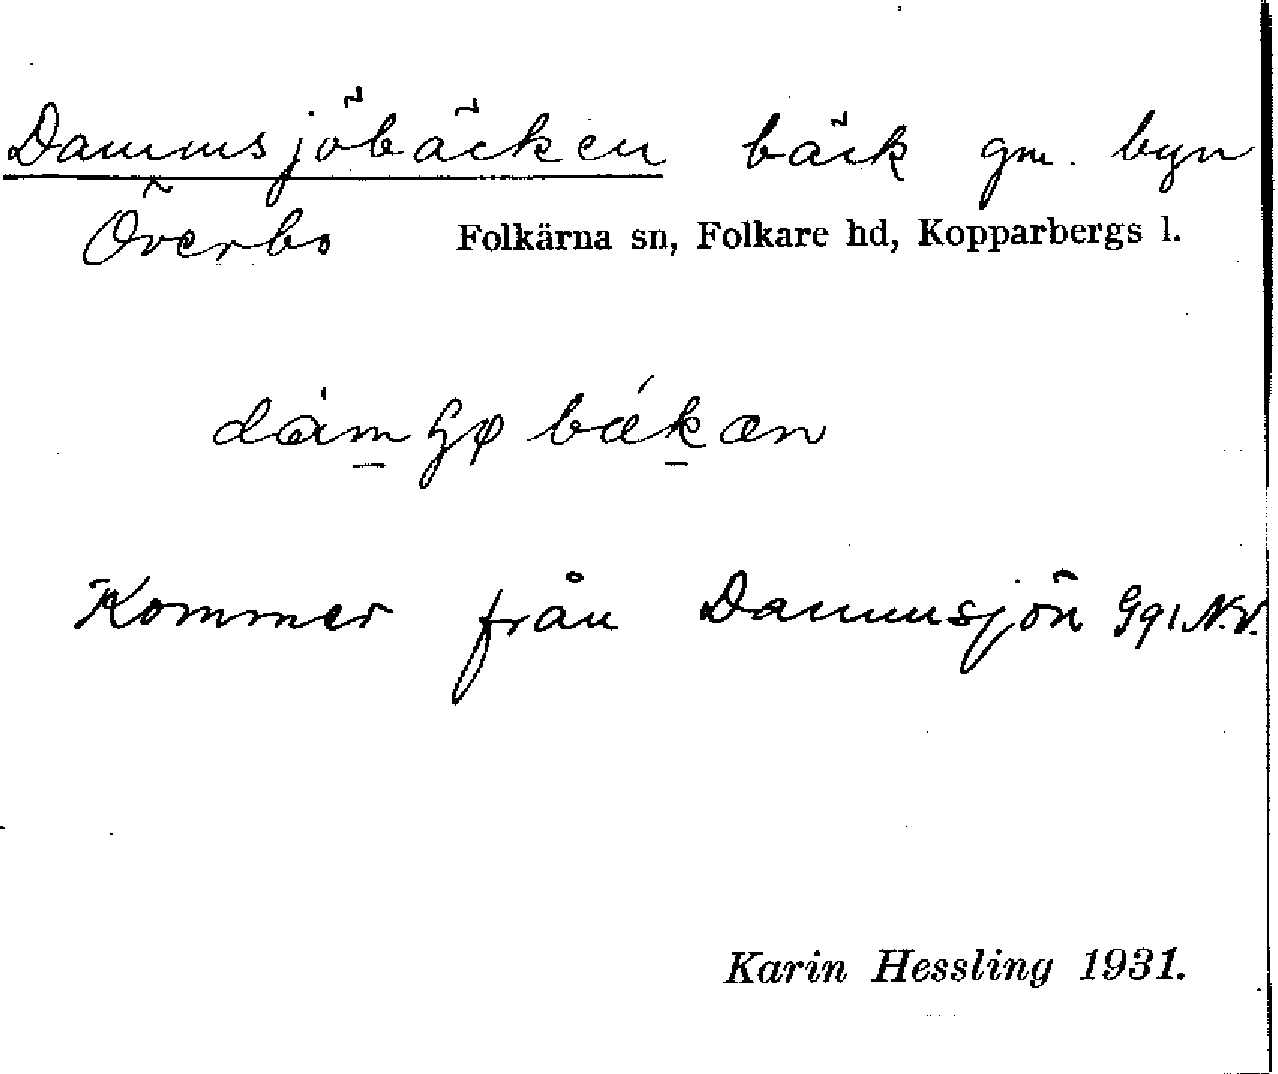 Dammsjöbäcken bäck gm. byn
Överbo Folkärna sn, Folkare hd, Kopparbergs l.
Kommer från Dammsjön Ggl N.V.
Karin Hessling 1931.